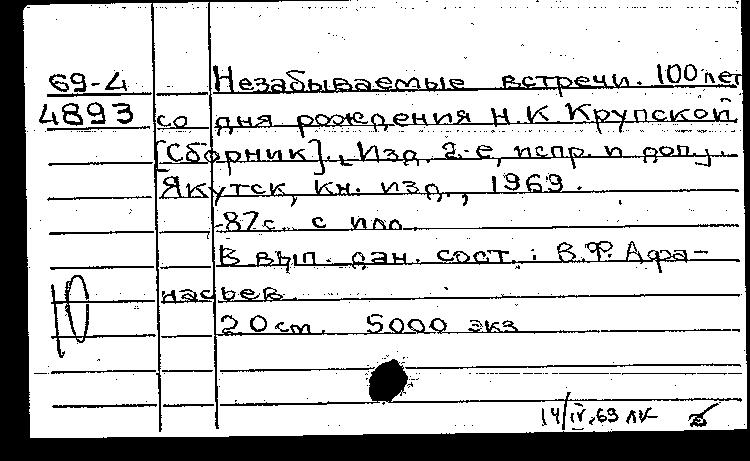 69-4 Незабываемые встречи. 100 лет
4893 со дня рождения Н.К Крупской.
[Сборник]. Изд. 2-е, испр. и доп.
Якутск, кн. изд., 1969.
87с. с илл.
В вып. дан. сост.: В.Ф. Афа-
насьев
Ю
20см. 5000 экз
14/IV.69 ЛК